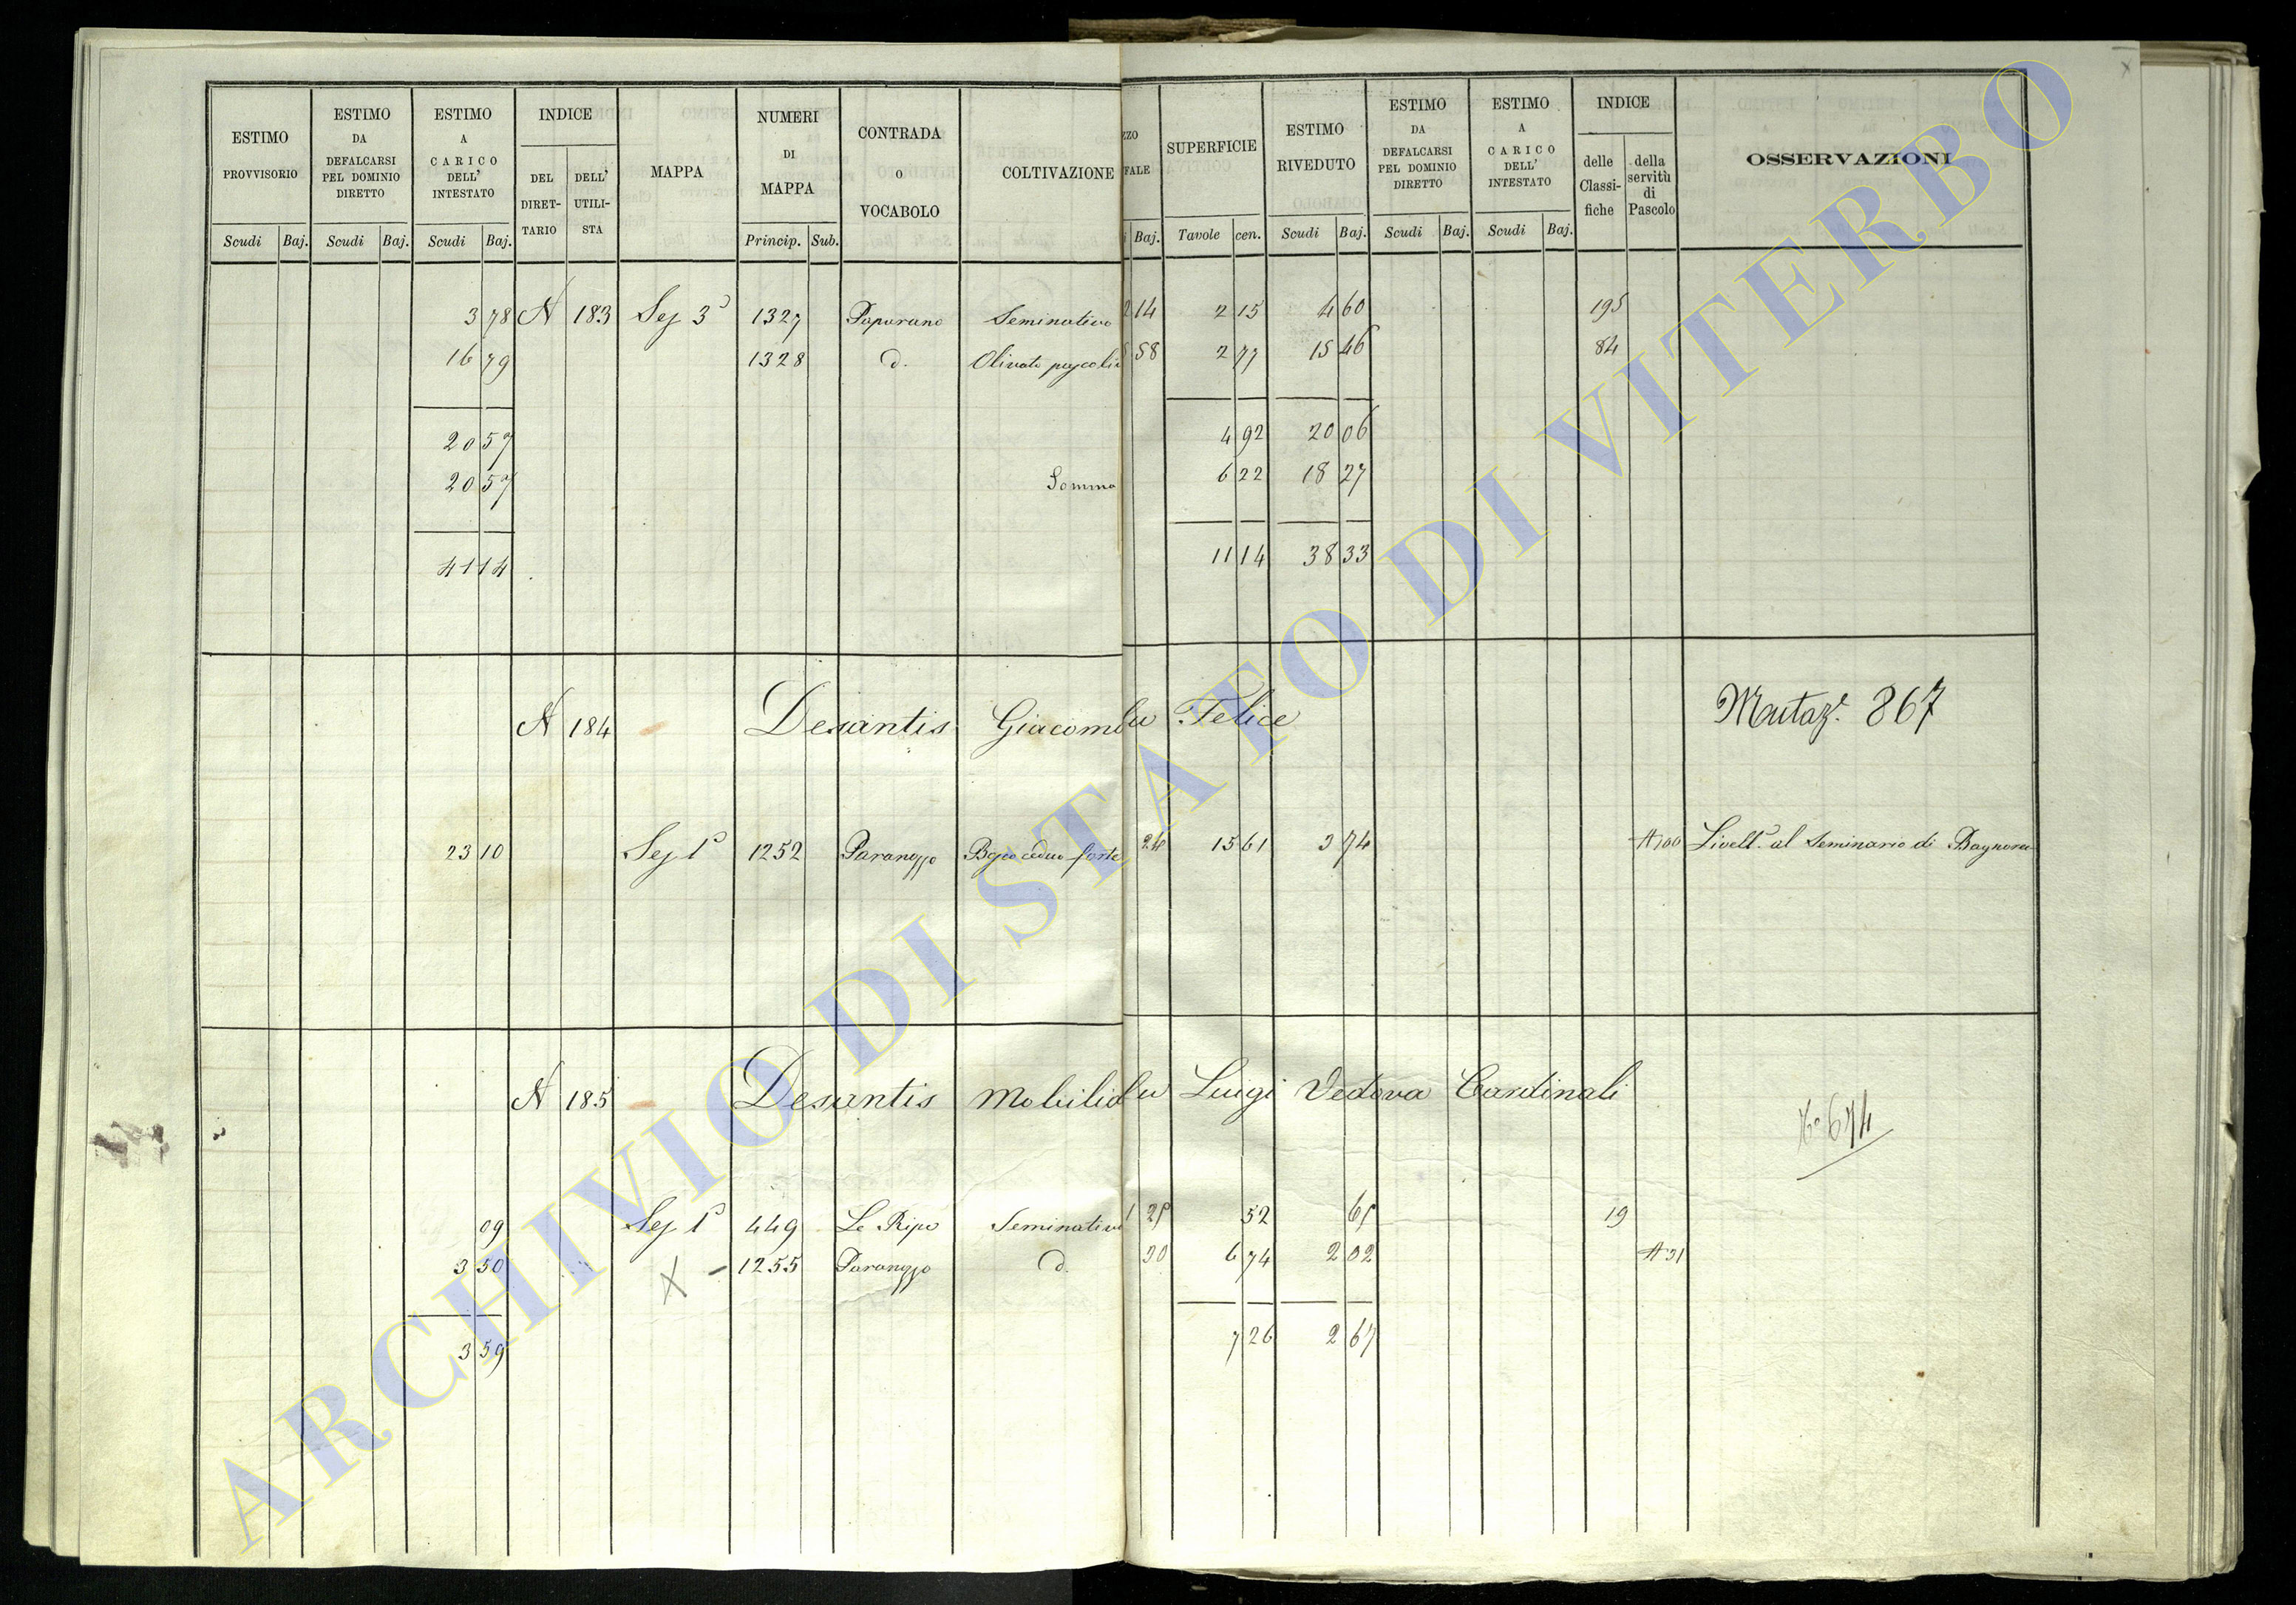 ESTIMO PROVVISORIO
ESTIMO DA DEFALCARSI PEL DOMINIO DIRETTO
ESTIMO A CARICO DELL' INTESTATO
INDICE
DEL DIRET-TARIO
DELL' UTILI-STA
MAPPA
NUMERI DI MAPPA
CONTRADA O VOCABOLO
COLTIVAZIONE
ZZO
FALE
SUPERFICIE
ESTIMO RIVEDUTO
ESTIMO DA DEFALCARSI PEL DOMINIO DIRETTO
ESTIMO A CARICO DELL' INTESTATO
INDICE
delle Classi-fiche
della servitù di Pascolo
OSSERVAZIONI
Scudi Baj. Scudi Baj. Scudi Baj. Princip. Sub. Baj. Tavole cen. Scudi Baj. Scudi Baj. Scudi Baj.
3 78 N 183 Sez 3 1327 Paparano Seminativo 2 14 2 15 4 60 195
16 79 1328 d. Olivato 58 2 77 15 46 84
20 57 4 92 20 06
20 57 Somma 6 22 18 27
41 14 11 14 38 33
N 184 Desantis Giacomo fu Felice Mutaz.e 867
23 10 Sez 1 1252 Bosco ceduo forte 24 15 61 3 74 A 100 Livell. al Seminario di Bagnorea
N 185 Desantis fu Luigi Vedova Cardinali
674
09 Sez 1 449 Le Ripe Seminativo 1 25 52 65 19
3 50 X - 1255 d. 30 6 74 2 02 A 31
3 59 7 26 2 67
ARCHIVIO DI STATO DI VITERBO